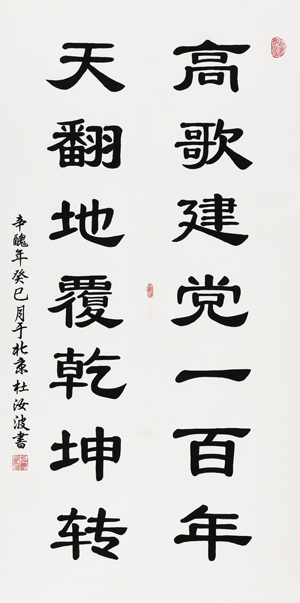 高歌建党一百年
天翻地覆乾坤转
辛醜年癸巳月于北京杜汝波書